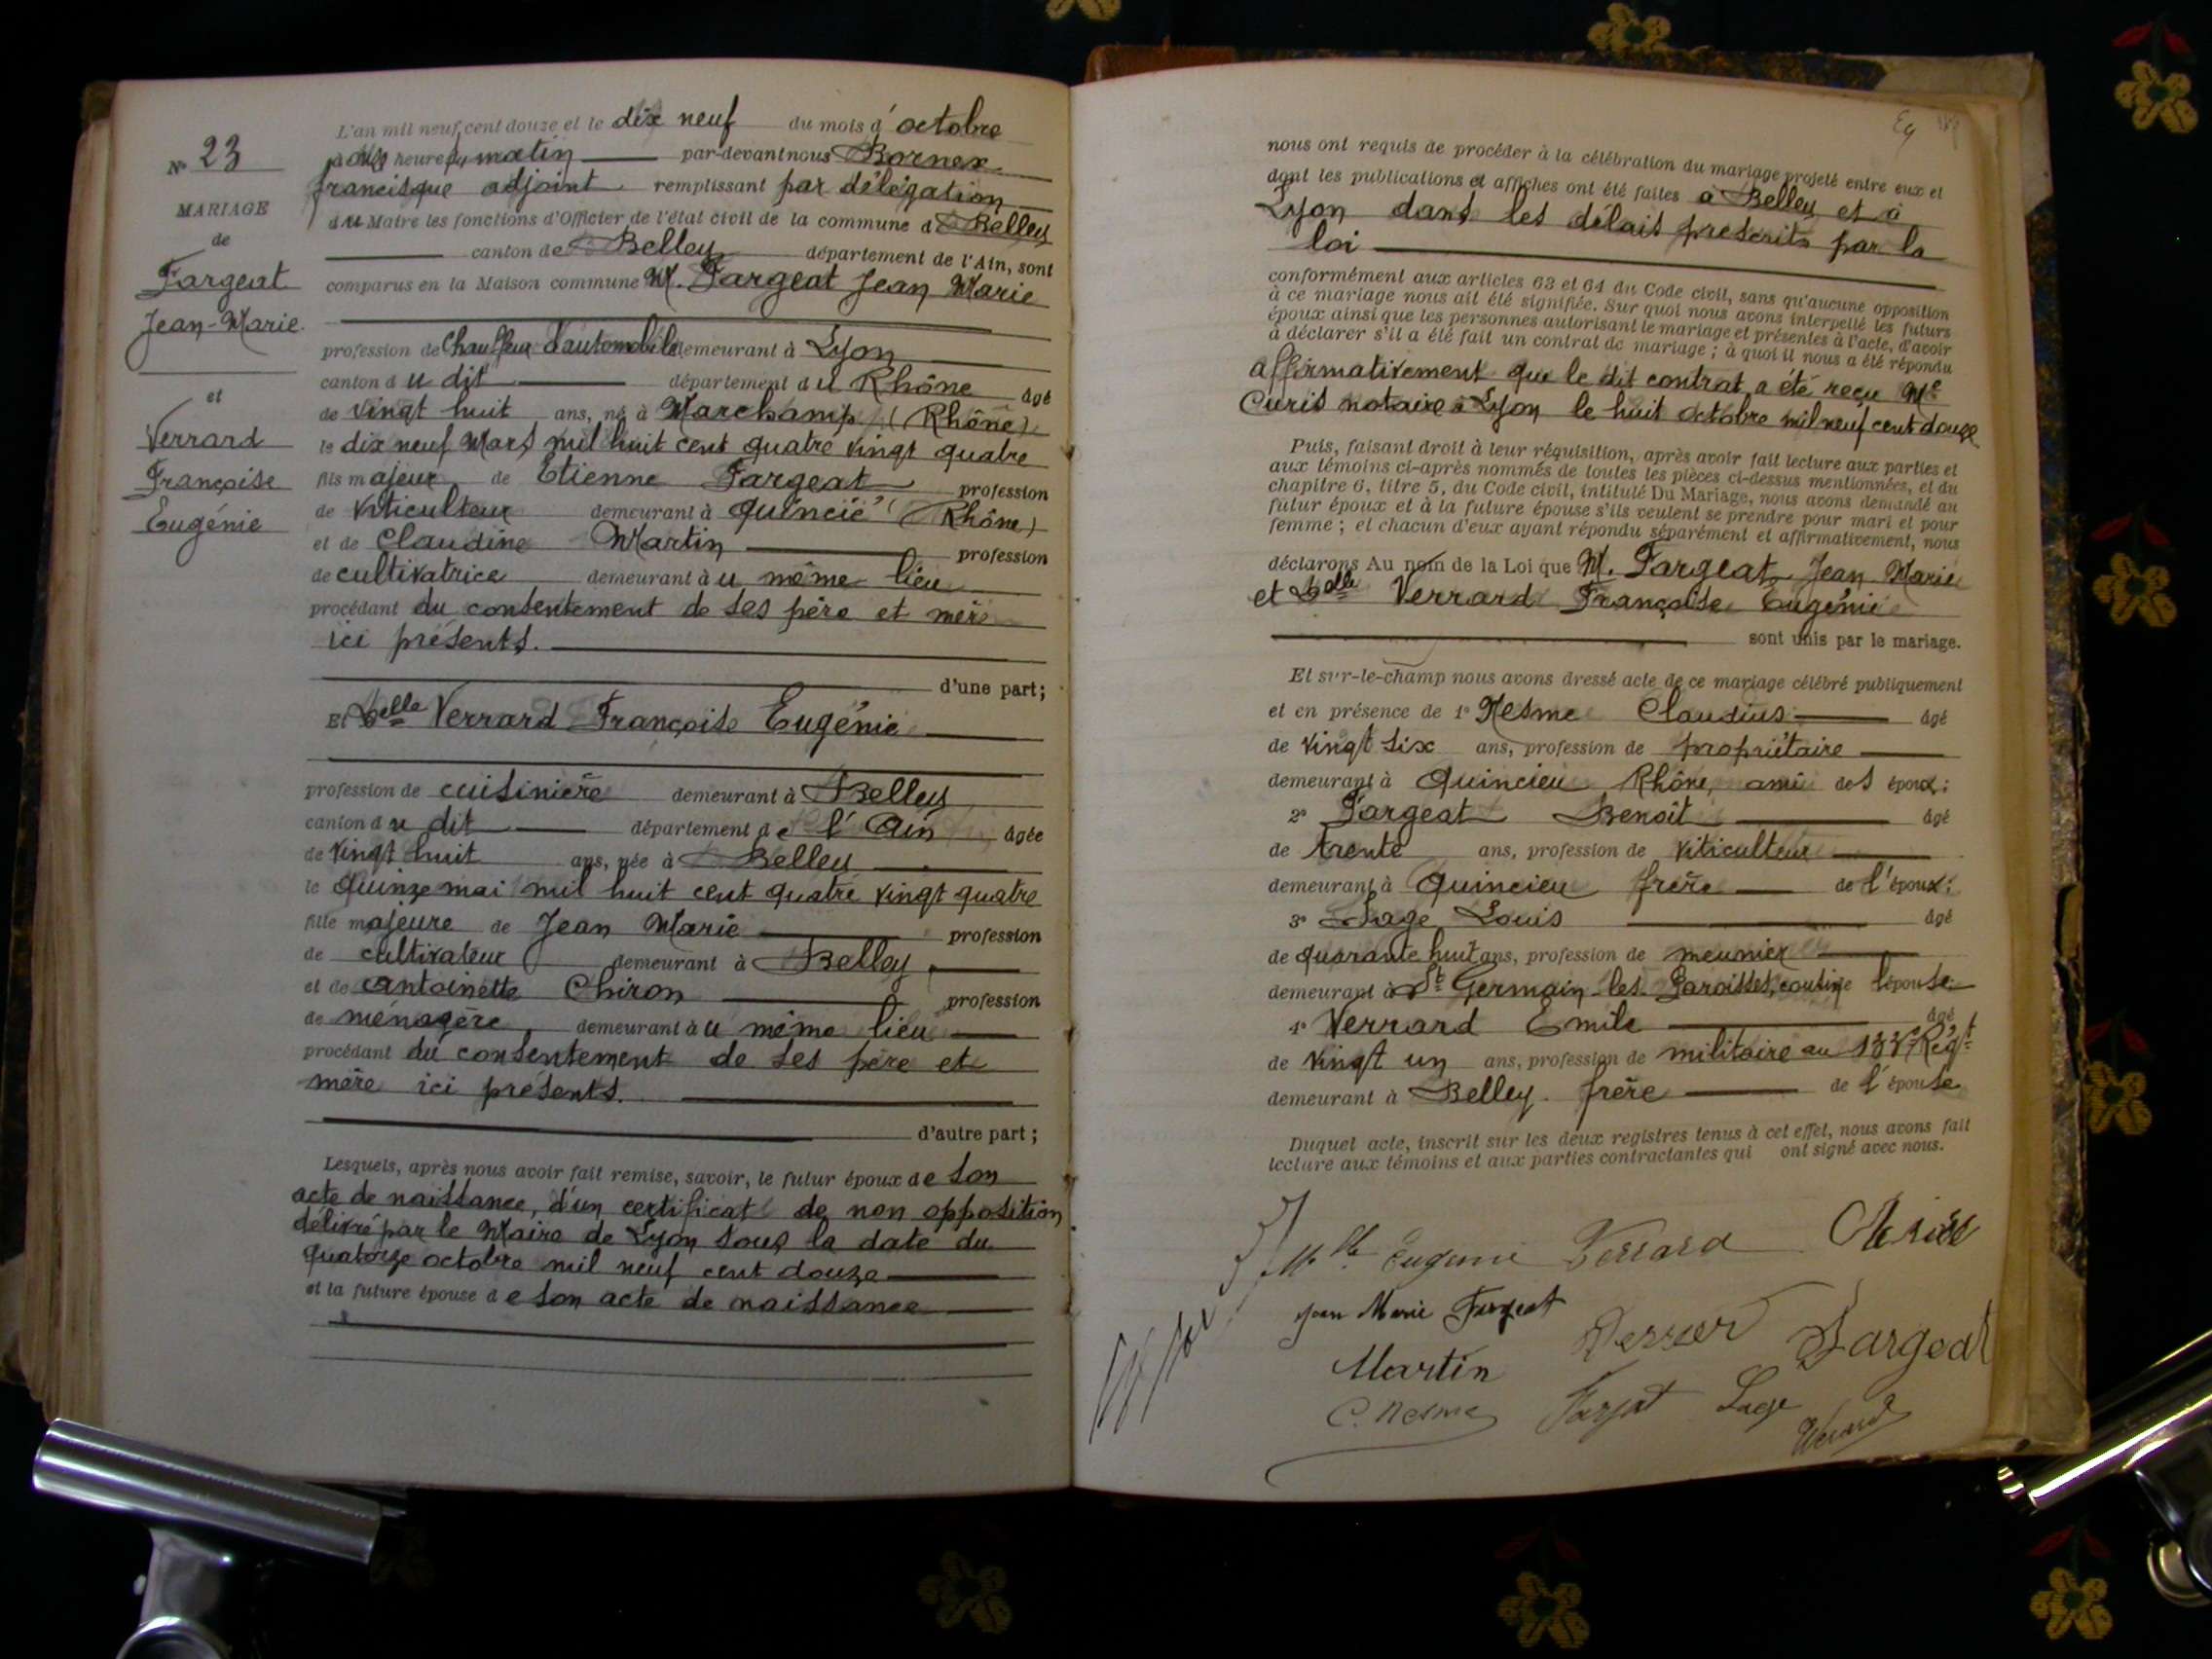 N° 23
MARIAGE
de
Fargeat
Jean-Marie
et
Verrard
Françoise
Eugénie
L'an mil neuf cent douze et le dix neuf du mois d'octobre
à heure du matin par-devant nous Bornex
francisque adjoint remplissant par délégation
du Maire les fonctions d'Officier de l'état civil de la commune de Belley
canton de Belley département de l'Ain, sont
comparus en la Maison commune M. Fargeat Jean Marie
profession de Chauffeur d'automobile demeurant à Lyon
canton du dit département du Rhône âgé
de vingt huit ans, né à Marchamp (Rhône)
le dix neuf Mars mil huit cent quatre vingt quatre
fils majeur de Etienne Fargeat profession
de viticulteur demeurant à Quincié (Rhône)
et de Claudine Martin profession
de cultivatrice demeurant au même lieu
procédant du consentement de ses père et mère
ici présents.
d'une part;
Et Delle Verrard Françoise Eugénie
profession de cuisinière demeurant à Belley
canton du dit département de l'Ain âgée
de vingt huit ans, née à Belley
le quinze mai mil huit cent quatre vingt quatre
fille majeure de Jean Marie profession
de cultivateur demeurant à Belley
et de Antoinette Chiron profession
de ménagère demeurant au même lieu
procédant du consentement de ses père et
mère ici présents.
d'autre part;
Lesquels, après nous avoir fait remise, savoir, le futur époux de son
acte de naissance, d'un certificat de non opposition
délivré par le Maire de Lyon sous la date du
quatorze octobre mil neuf cent douze
et la future épouse de son acte de naissance
nous ont requis de procéder à la célébration du mariage projeté entre eux et
dont les publications et affiches ont été faites à Belley et à
Lyon dans les délais prescrits par la
loi
conformément aux articles 63 et 64 du Code civil, sans qu'aucune opposition
à ce mariage nous ait été signifiée. Sur quoi nous avons interpellé les futurs
époux ainsi que les personnes autorisant le mariage et présentes à l'acte, d'avoir
à déclarer s'il a été fait un contrat de mariage; à quoi il nous a été répondu
affirmativement que le dit contrat a été reçu Me
Curis notaire à Lyon le huit octobre mil neuf cent douze
Puis, faisant droit à leur réquisition, après avoir fait lecture aux parties et
aux témoins ci-après nommés de toutes les pièces ci-dessus mentionnées, et du
chapitre 6, titre 5, du Code civil, intitulé Du Mariage, nous avons demandé au
futur époux et à la future épouse s'ils veulent se prendre pour mari et pour
femme; et chacun d'eux ayant répondu séparément et affirmativement, nous
déclarons Au nom de la Loi que M. Fargeat Jean Marie
et Delle Verrard Françoise Eugénie
sont unis par le mariage.
Et sur-le-champ nous avons dressé acte de ce mariage célébré publiquement
et en présence de 1° Nesme Claudius âgé
de vingt six ans, profession de propriétaire
demeurant à Quincieu Rhône ami des époux;
2° Fargeat Benoît âgé
de trente ans, profession de viticulteur
demeurant à Quincieu frère de l'époux;
3° Sage Louis âgé
de quarante huit ans, profession de meunier
demeurant à St Germain-les-Paroisses, cousin de l'épouse
4° Verrard Emile âgé
de vingt un ans, profession de militaire au 133e Régt
demeurant à Belley frère de l'épouse
Duquel acte, inscrit sur les deux registres tenus à cet effet, nous avons fait
lecture aux témoins et aux parties contractantes qui ont signé avec nous.
Mlle Eugenie Verrard
Jean Marie Fargeat
Fargeat
Martin
C. Nesme Sage